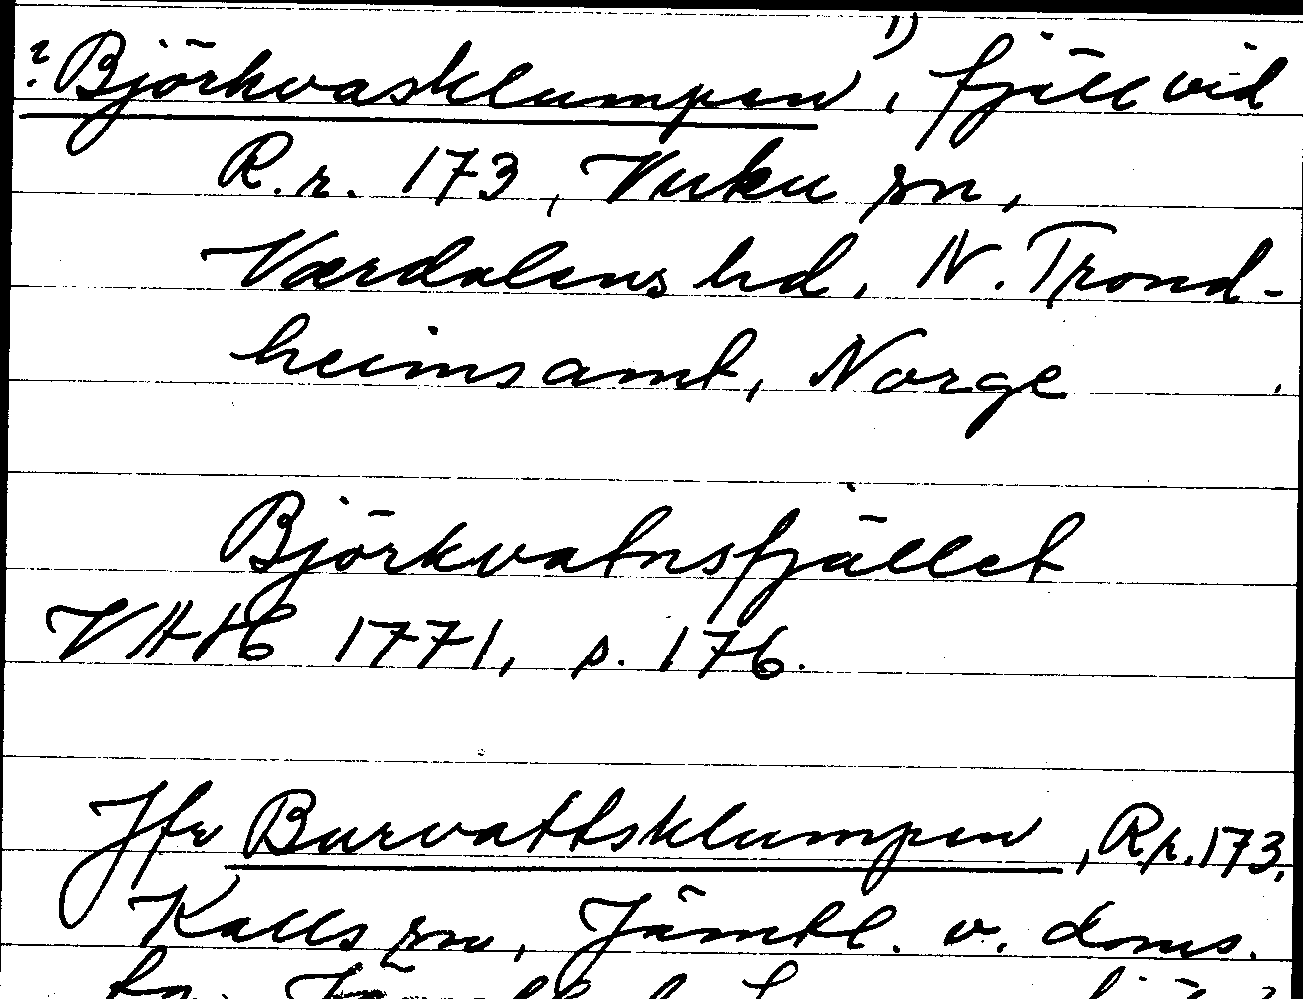 ? Björkvasklumpen 1), fjäll vid
R.r. 173, Vuku sn,
Værdalens hd, N. Trond-
heims amt, Norge
Björkvatnsfjället
VHAH 1771, s. 176.
Jfr Burvattsklumpen, R.r. 173,
Kalls sn, Jämtl. v. doms.